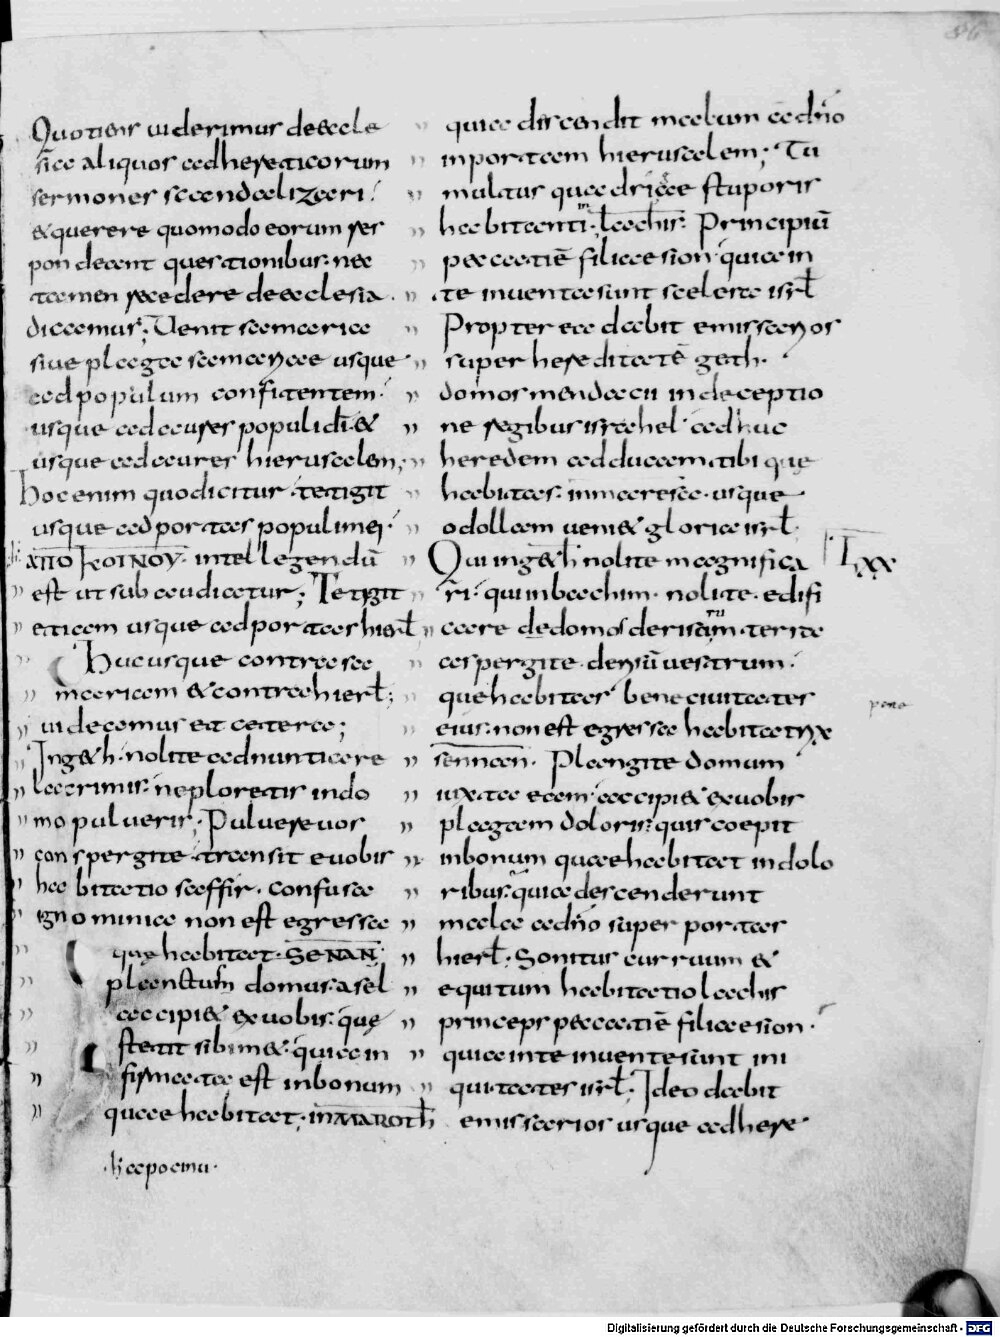 86
Quotiens uiderimus deeccle
siae aliquos adhereticorum
sermones scandalizari.
& querere quomodo eorum res
pondeant questionibus. nec
tamen recedere deecclesia.
dicamus; Uenit samariae
siue plaga samariae usque
adpopulum confitentem.
usque adacures populi di &
usque adacures hierusalem;
hoc enim quodicitur. tetigit
usque adportas populi mei.
ΑΠΟ ΚΟΙΝΟΥ. intellegendū
est ut subaudiatur; Tetigit
etiam usque adportas hierl
Hucusque contra sa
mariam & contrahierl;
uideamus et cetera;
Ingeth. nolite adnuntiare
lacrimis. neploretis indo
mo pulueris; Puluere uos
conspergite. transit euobis
habitatio saffir. confusa
ignominia non est egressa
quę habitat. SENAN
planctum domus. asel
accipi& exuobis. quę
stetit sibim&. quia in
firmata est inbonum
quae habitat; inMAROTH
quia discendit malum adnō
inportam hierusalem; Tu
multus quadrigae stuporis
habitanti. lachis. Principiū
peccatiē filiae sion. quia in
te inuentasunt scelera isrl
Propter ea dabit emissarios
super hereditatē geth.
domos mendacii indeceptio
ne regibus israhel. adhuc
heredem adducam tibi quę
habitas. inmaresa. usque
odollam ueni& gloria isrl.
LXX
Qui ingeth nolite magnifica
ri. qui inbachim. nolite. edifi
care dedomo derisum. terra
aspergite. derisū uestrum.
quehabitas bene ciuitates
eius. non est egressa habitatrix
pena
sennan. Plangite domum
iuxta eam. accipi& exuobis
plagam doloris. quis coepit
inbonum quaehabitat indolo
ribus. quia descenderunt
mala adnō super portas
hierl. Sonitus curruum &
equitum habitatio lachis
princeps peccatiē filiae sion.
quia inte inuentesunt ini
quitates isrl. Ideo dabit
emissarios usque adhere
Digitalisierung gefördert durch die Deutsche Forschungsgemeinschaft - DFG